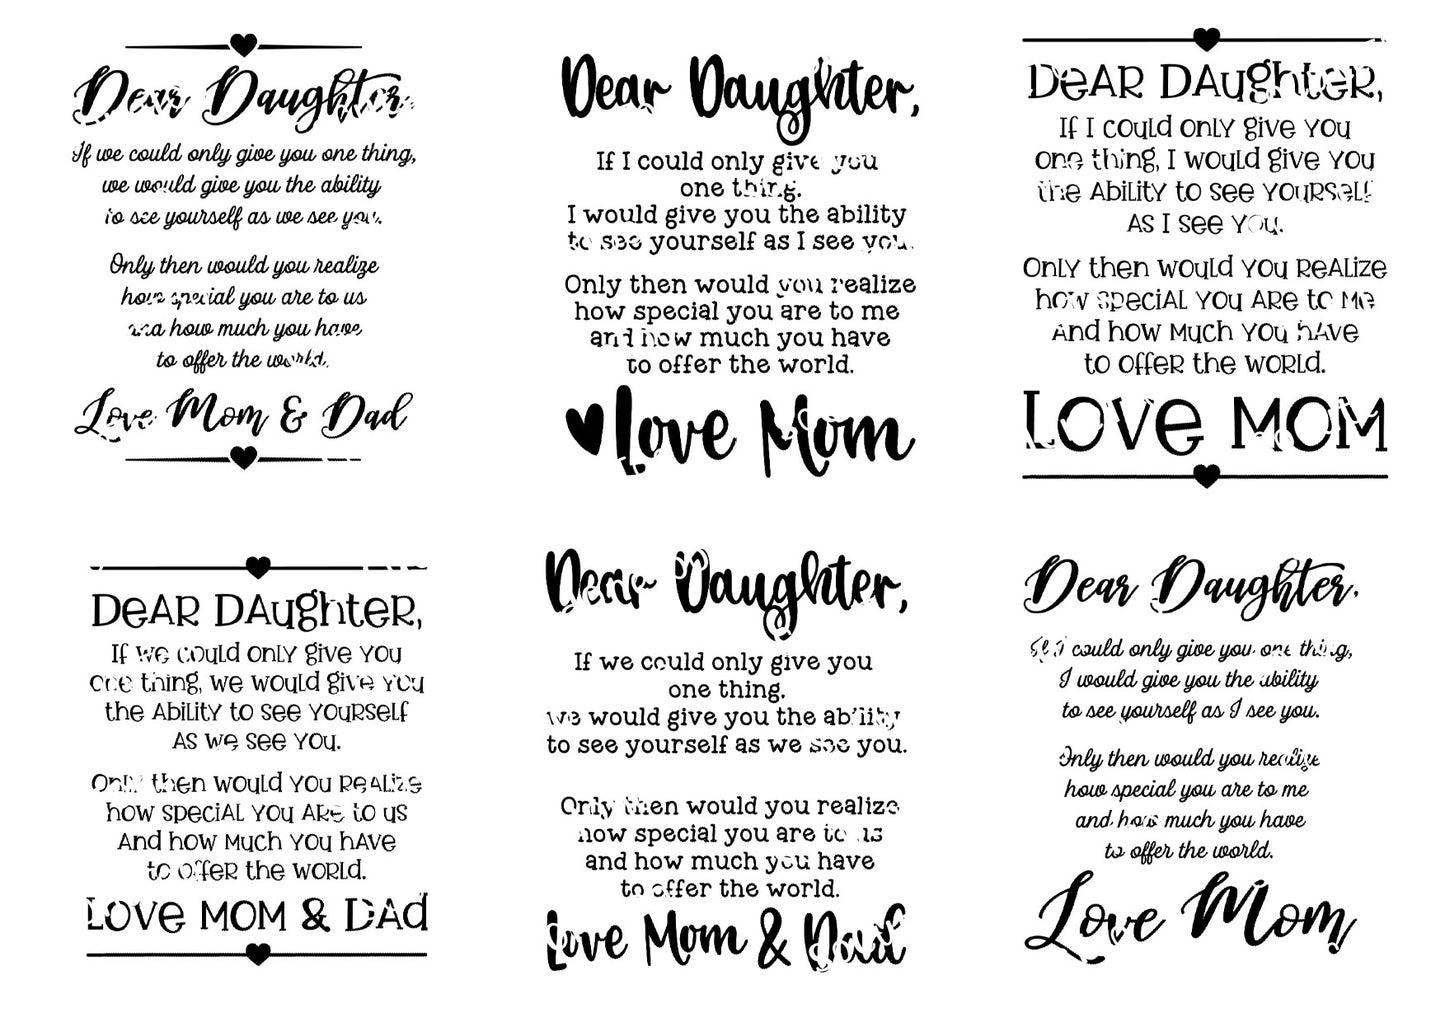 Dear Daughter,
If we could only give you one thing,
we would give you the ability
to see yourself as we see you.
Only then would you realize
how special you are to us
and how much you have
to offer the world.
Love Mom & Dad
Dear Daughter,
If I could only give you
one thing.
I would give you the ability
to see yourself as I see you.
Only then would you realize
how special you are to me
and how much you have
to offer the world.
Love Mom
Dear Daughter,
If I could only give you
one thing, I would give you
the ability to see yourself
as I see you.
Only then would you realize
how special you are to me
and how much you have
to offer the world.
Love Mom
Dear Daughter,
If we could only give you
one thing, we would give you
the ability to see yourself
as we see you.
Only then would you realize
how special you are to us
and how much you have
to offer the world.
Love Mom & Dad
Dear Daughter,
If we could only give you
one thing.
we would give you the ability
to see yourself as we see you.
Only then would you realize
how special you are to us
and how much you have
to offer the world.
Love Mom & Dad
Dear Daughter,
If I could only give you one thing,
I would give you the ability
to see yourself as I see you.
Only then would you realize
how special you are to me
and how much you have
to offer the world.
Love Mom